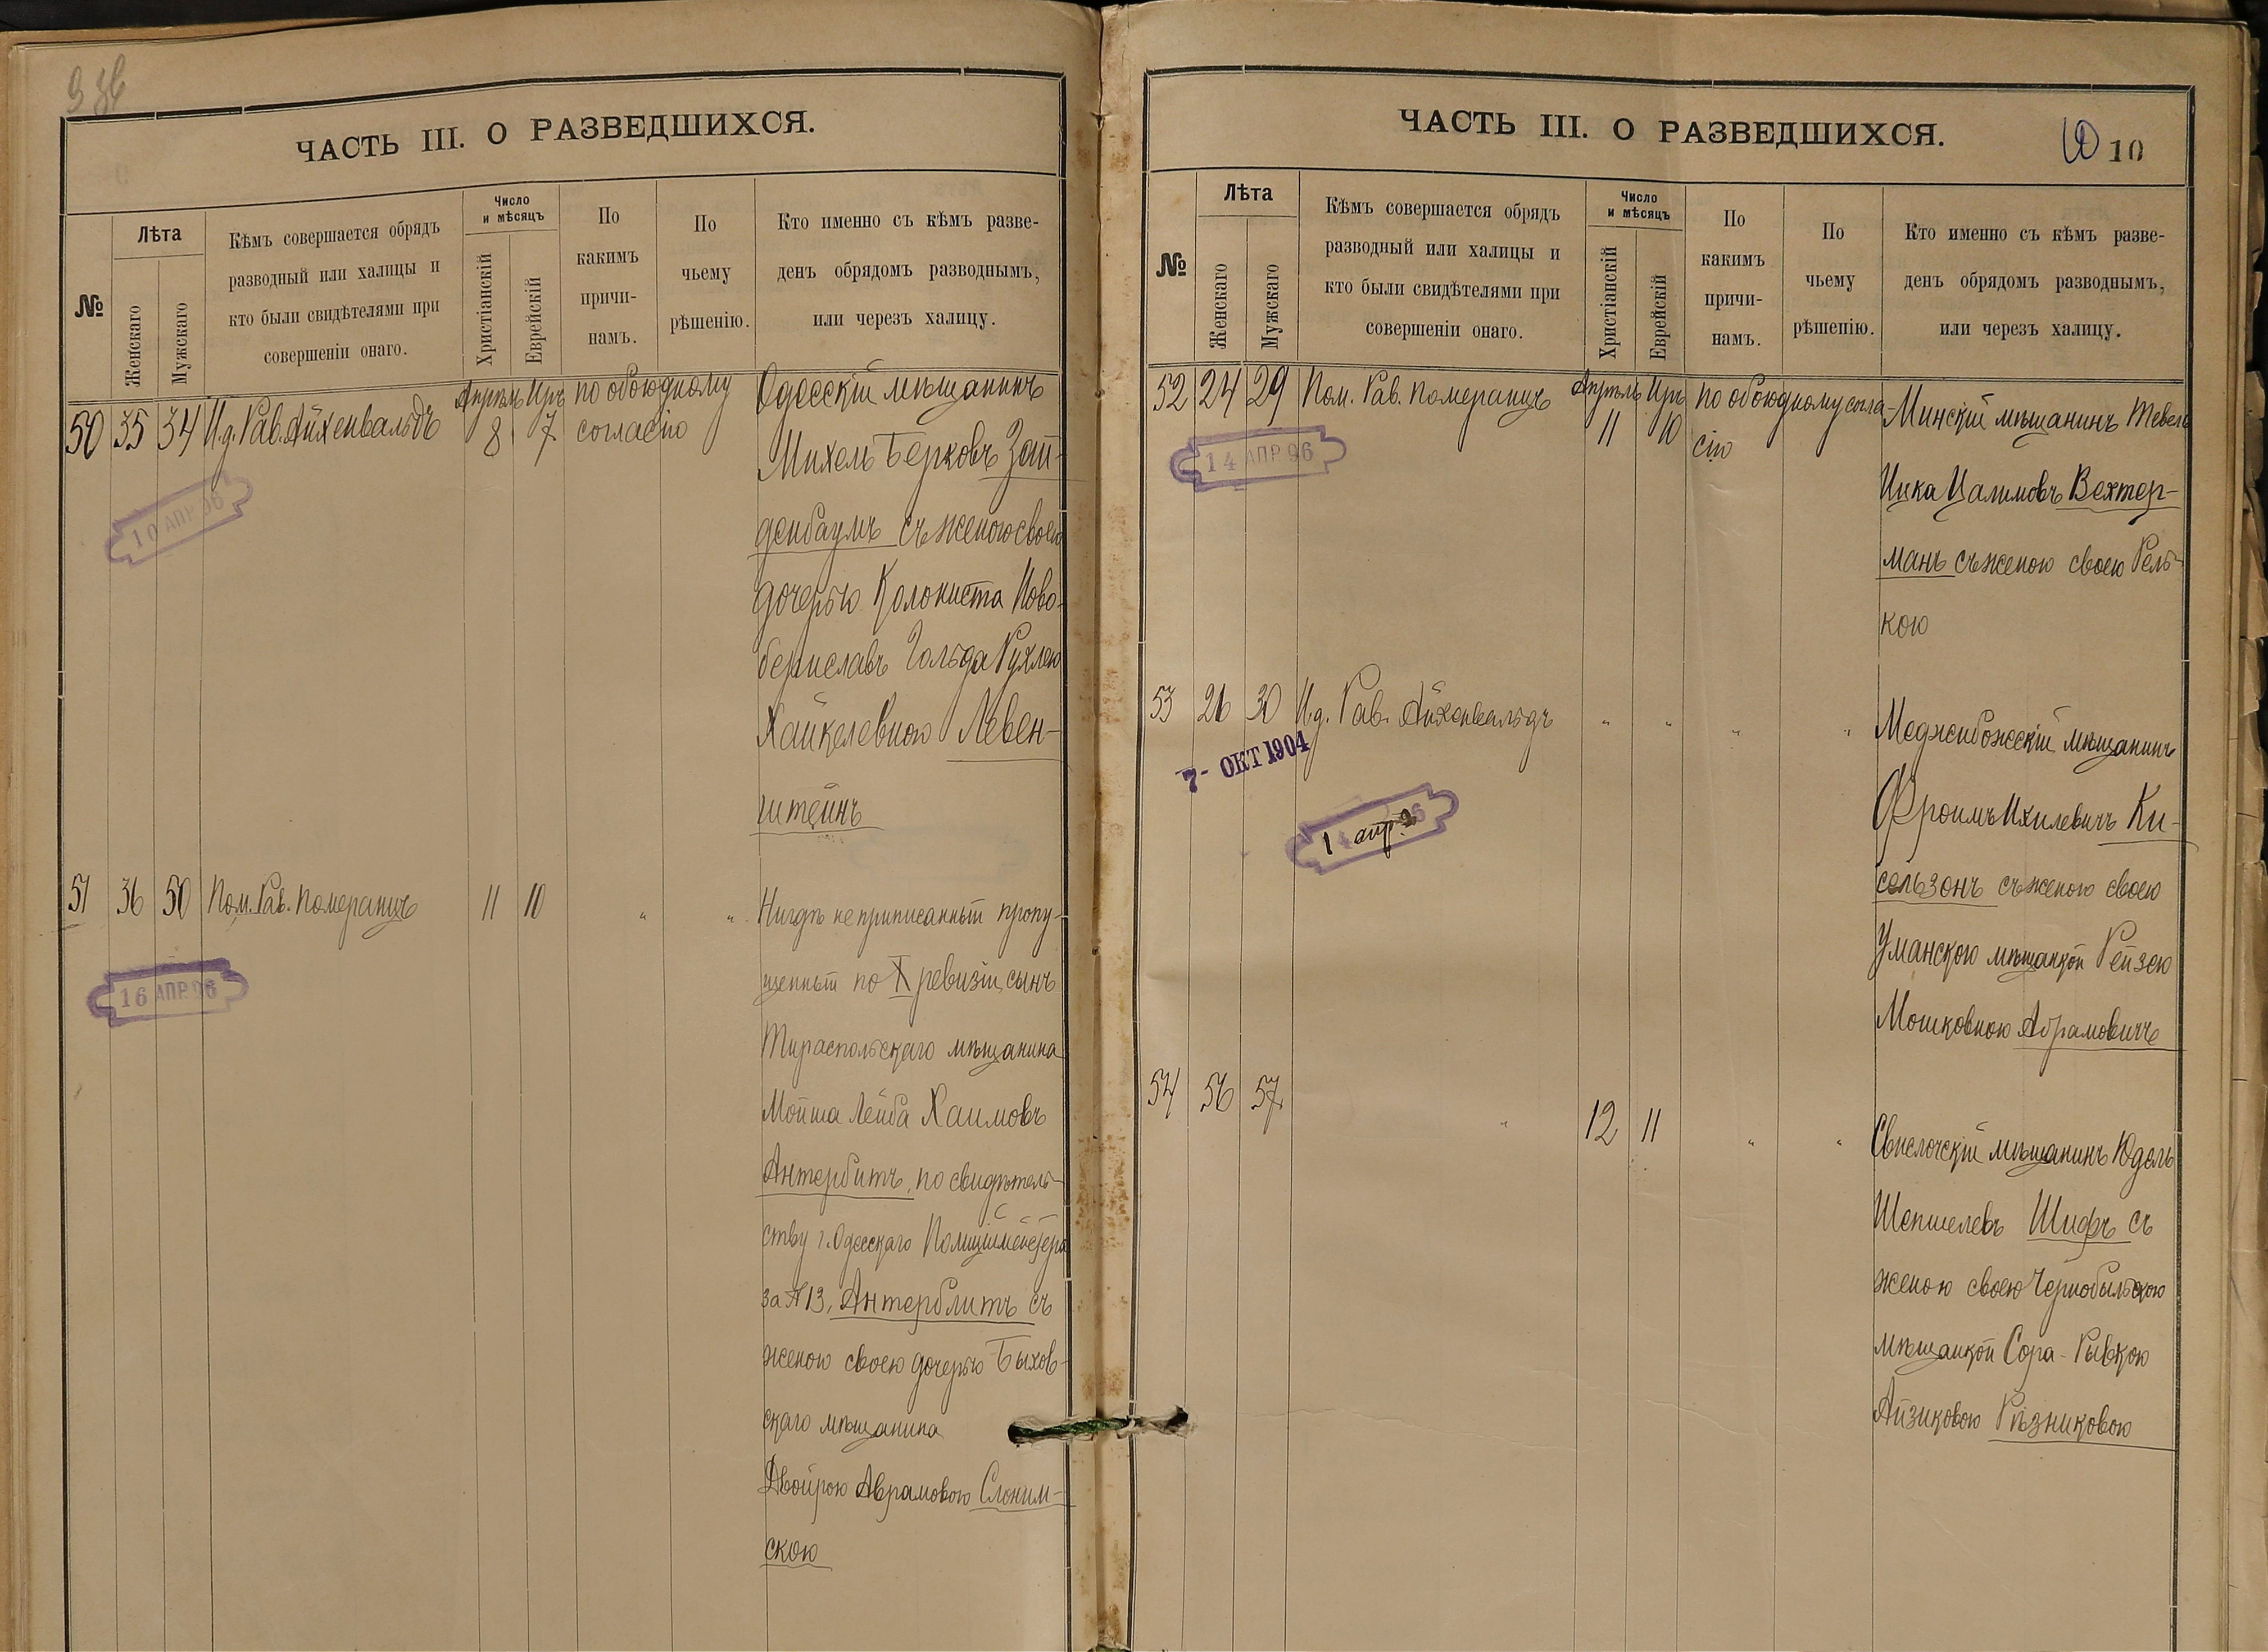 ЧАСТЬ III. О РАЗВЕДШИХСЯ.
№
Лѣта
Женскаго
Мужскаго
Кѣмъ совершается обрядъ
разводный или халицы и
кто были свидѣтелями при
совершеніи онаго.
Число
и мѣсяцъ
Христіанскій
Еврейскій
По
какимъ
причи-
намъ.
По
чьему
рѣшенію.
Кто именно съ кѣмъ разве-
денъ обрядомъ разводнымъ,
или черезъ халицу.
50 35 34 И.д. Рав. Айхенвальдъ Апрѣль 8 Иръ 7 по обоюдному
согласію
10 АПР 96
Одесскій мѣщанинъ
Михель Берковъ Зай-
денбаумъ съ женою своею
дочерью Колониста Ново-
бериславъ Гольда Рухлею
Хайкелевною Левен-
штейнъ
51 36 50 Пом. Рав. Померанцъ 11 10 " "
16 АПР 96
Нигдѣ не приписанный пропу-
щенный по X ревизіи, сынъ
Тираспольскаго мѣщанина
Мойша Лейба Хаимовъ
Антербитъ, по свидѣтель-
ству г. Одесскаго Полицiймейстера
за № 13, Антерблитъ съ
женою своею дочерью Быхов-
скаго мѣщанина
Двойрою Аврамовою Слоним-
скою
ЧАСТЬ III. О РАЗВЕДШИХСЯ.
10 10
№
Лѣта
Женскаго
Мужскаго
Кѣмъ совершается обрядъ
разводный или халицы и
кто были свидѣтелями при
совершеніи онаго.
Число
и мѣсяцъ
Христіанскій
Еврейскій
По
какимъ
причи-
намъ.
По
чьему
рѣшенію.
Кто именно съ кѣмъ разве-
денъ обрядомъ разводнымъ,
или черезъ халицу.
52 24 29 Пом. Рав. Померанцъ Апрѣль 11 Иръ 10 по обоюдному согла-
сію
14 АПР 96
Минскій мѣщанинъ Тевель
Ицка Цалимовъ Вехтер-
манъ съ женою своею Рель-
кою
53 26 30 И.д. Рав. Айхенвальдъ " " " "
7- ОКТ 1904
Меджибожскій мѣщанинъ
Фроимъ Ихилевичъ Ки-
сельзонъ съ женою своею
Уманскою мѣщанкой Рейзею
Мошковною Абрамовичъ
54 56 57 " 12 11 " "
Свислочскій мѣщанинъ Юдель
Шепшелевъ Шифъ съ
женою своею Чернобыльскою
мѣщанкой Сора-Рывкою
Айзиковою Рѣзниковою